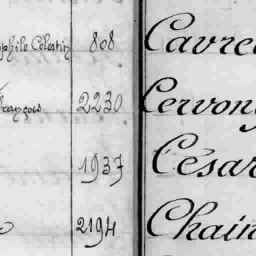 Théophile Célestin 808 Cavre
François 2230 Cervon
1937 César
2194 Chain